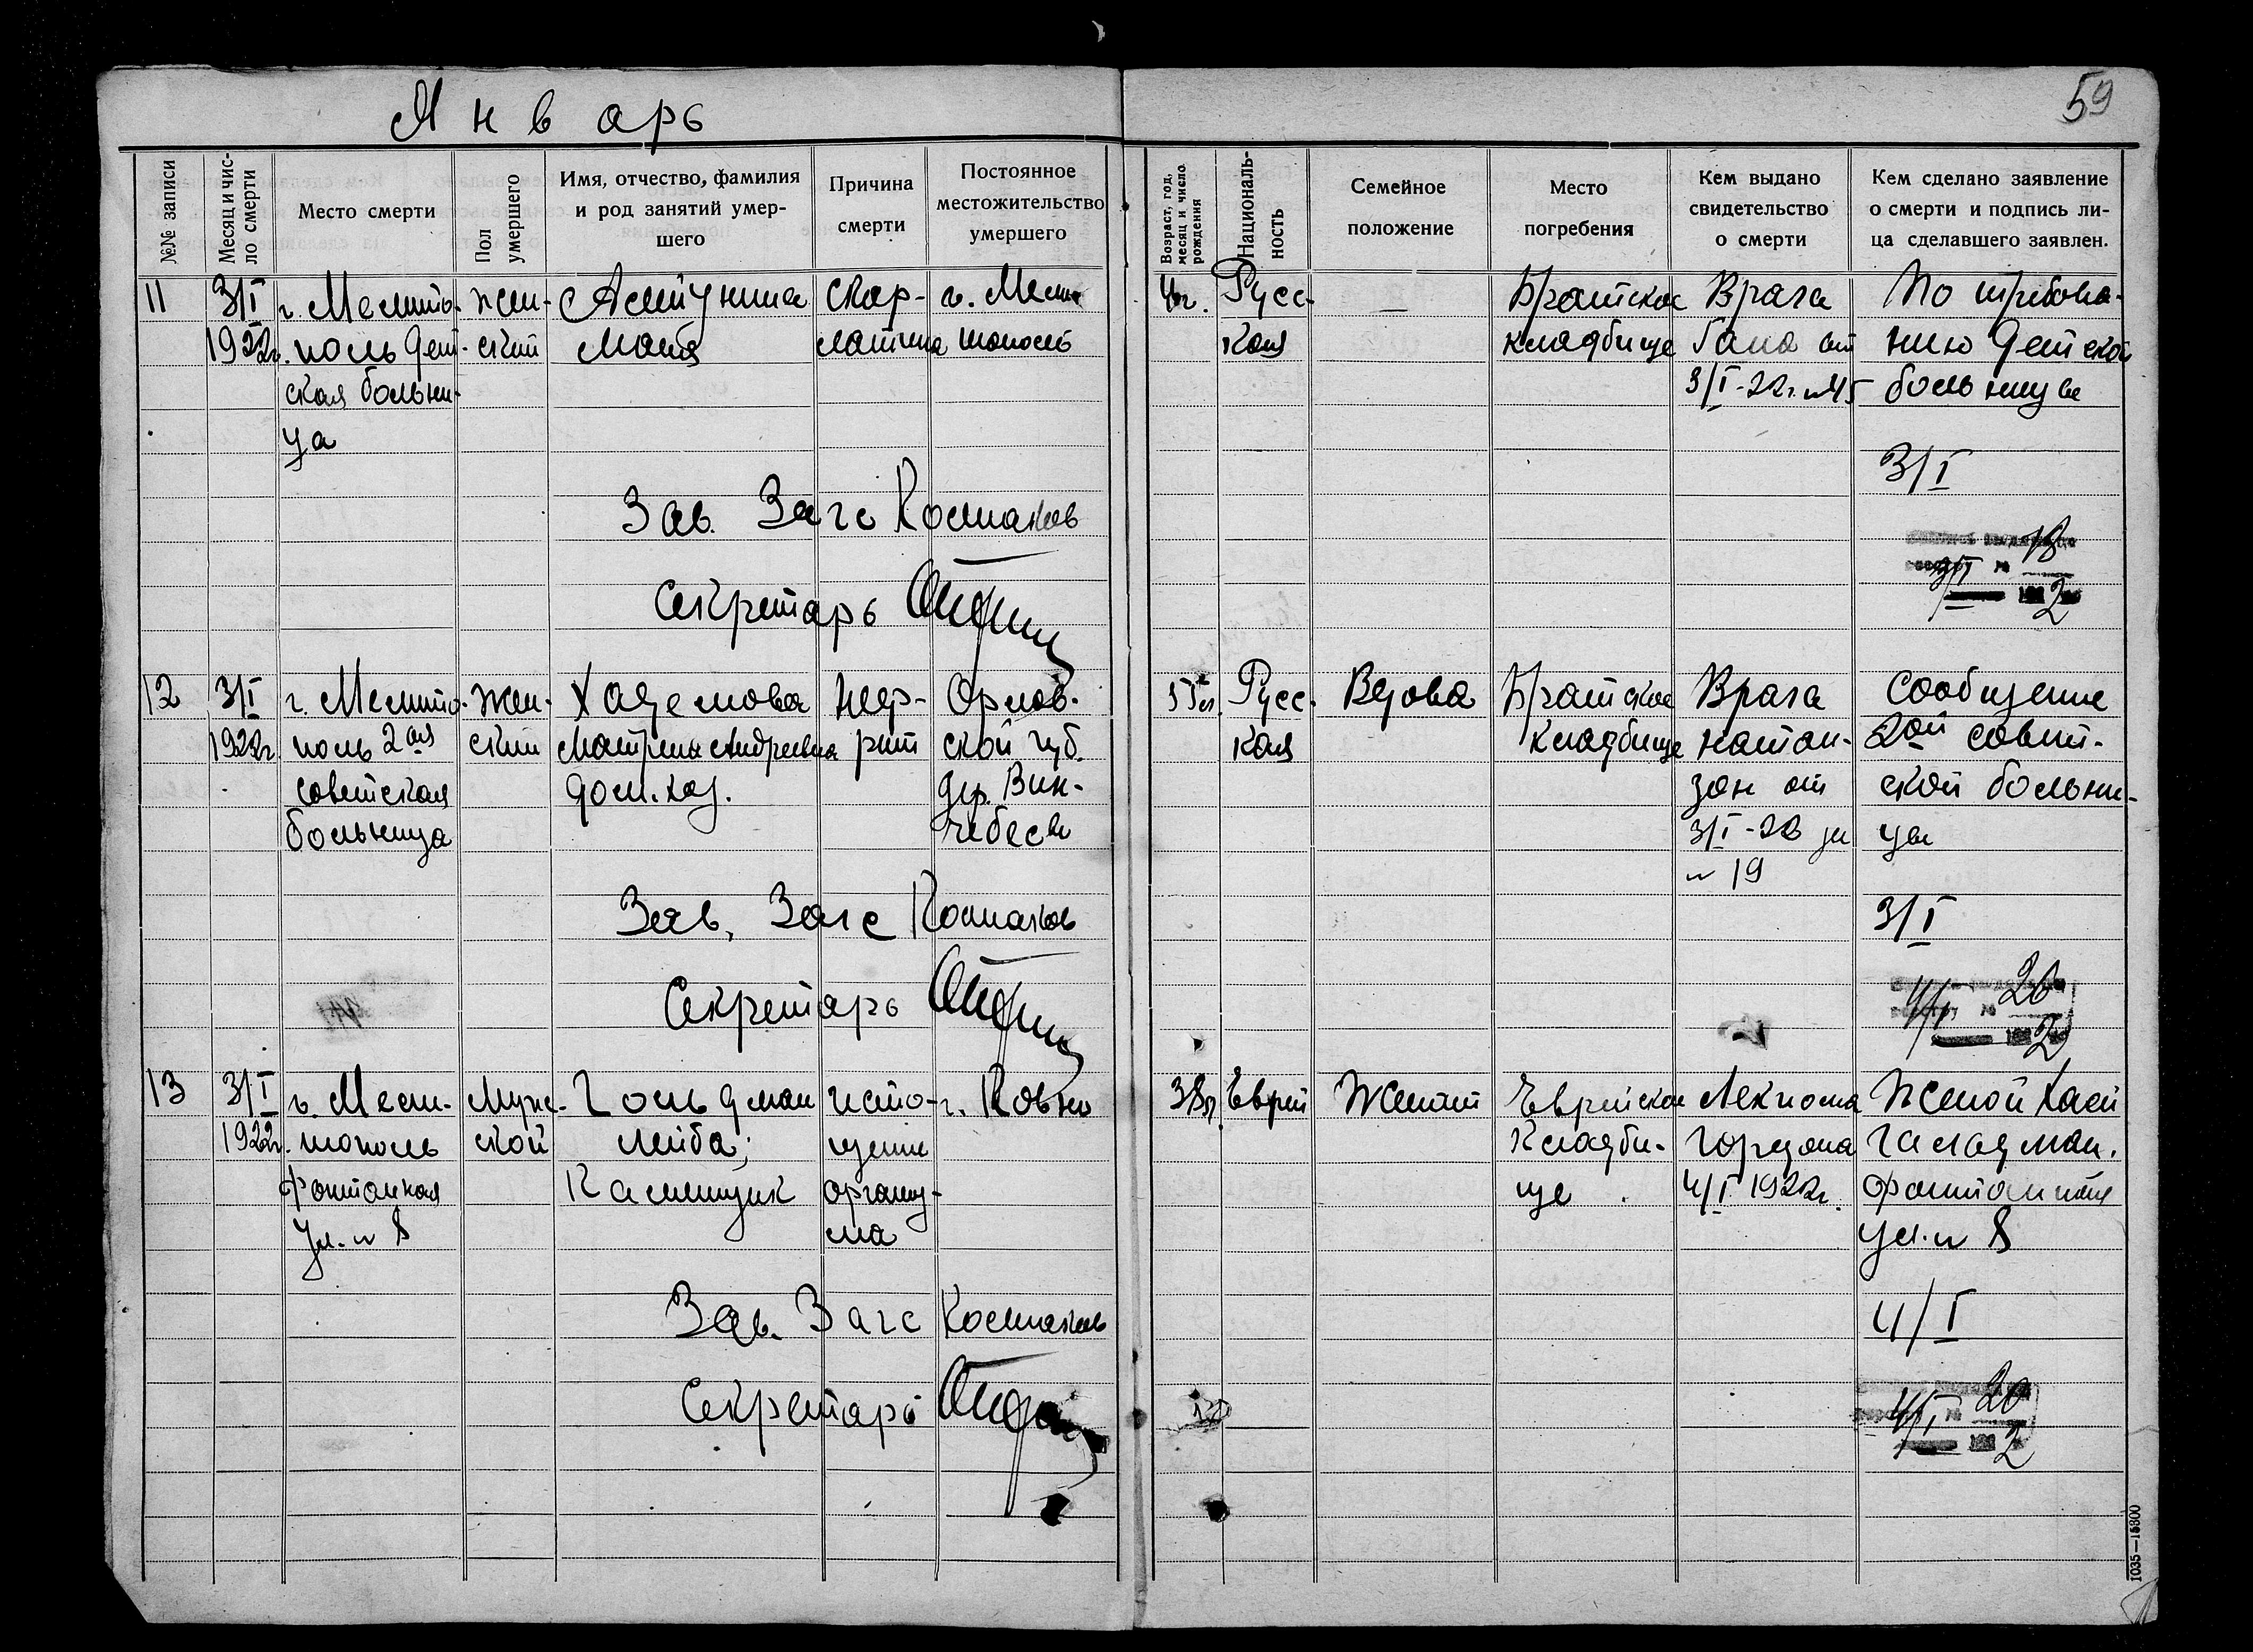 Январь
59
№№ записи
Месяц и число смерти
Место смерти
Пол умершего
Имя, отчество, фамилия
и род занятий умер-
шего
Причина
смерти
Постоянное
местожительство
умершего
Возраст, год,
месяц и число
рождения
Националь-
ность
Семейное
положение
Место
погребения
Кем выдано
свидетельство
о смерти
Кем сделано заявление
о смерти и подпись ли-
ца сделавшего заявлен.
11
3/I
1922г.
г. Мелито-
поль Дет-
ская больни-
ца
жен-
ский
Маня
скар-
латина
г. Мели
тополь
4г.
Русс-
кая
—
Братское
кладбище
Врача
от
3/I-22г. №45
По требова-
нию Детской
больницы
3/I
Зав. Загс
Секретарь
3/I № 18
1922
12
3/I
1922г.
г. Мелито-
поль 2ая
советская
больница
жен-
ский
Матрена Андреевна
дом. хоз.
неф-
рит
Орлов-
ской губ.
дер.
55л.
Русс-
кая
Вдова
Братское
кладбище
Врача
Натан-
зон от
3/I-22 за
№ 19
Сообщение
2ой совет-
ской больни-
цы
3/I
Зав. Загс
Секретарь
4/I № 20
2
13
3/I
1922г.
г. Мели-
тополь
Фонтанная
ул. № 8
Муж-
ской
Гольдман
Лейба;
Каменщик
исто-
щение
организ-
ма
г. Ковно
38л.
Еврей
Женат
Еврейское
Кладби-
ще
Лекпома
Гордона
4/I 1922г.
Женой Хаей
Гольдман.
Фонтанная
ул. № 8
4/I
Зав. Загс
Секретарь
4/I № 20
2
1035—15300